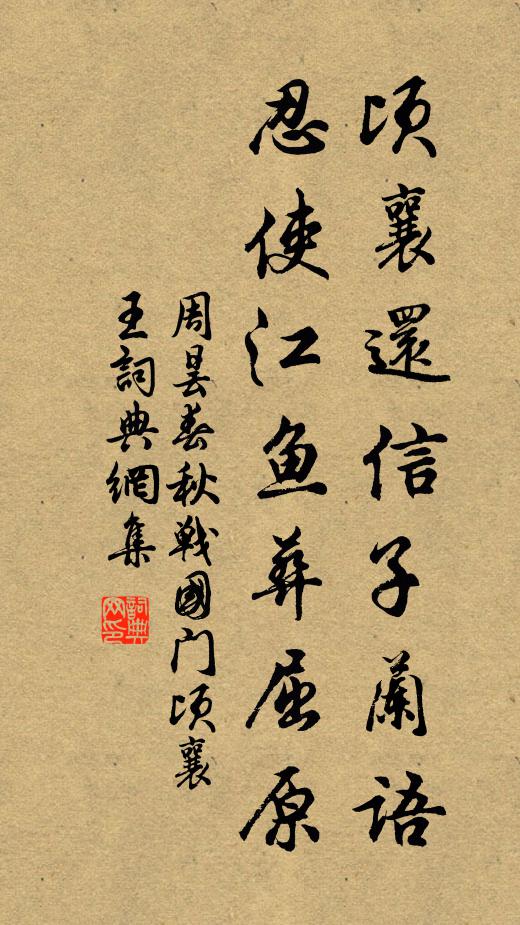 頃襄還信子蘭語
忍使江鱼葬屈原
周昙春秋戰國门頃襄
王詞典網集
詞典网印